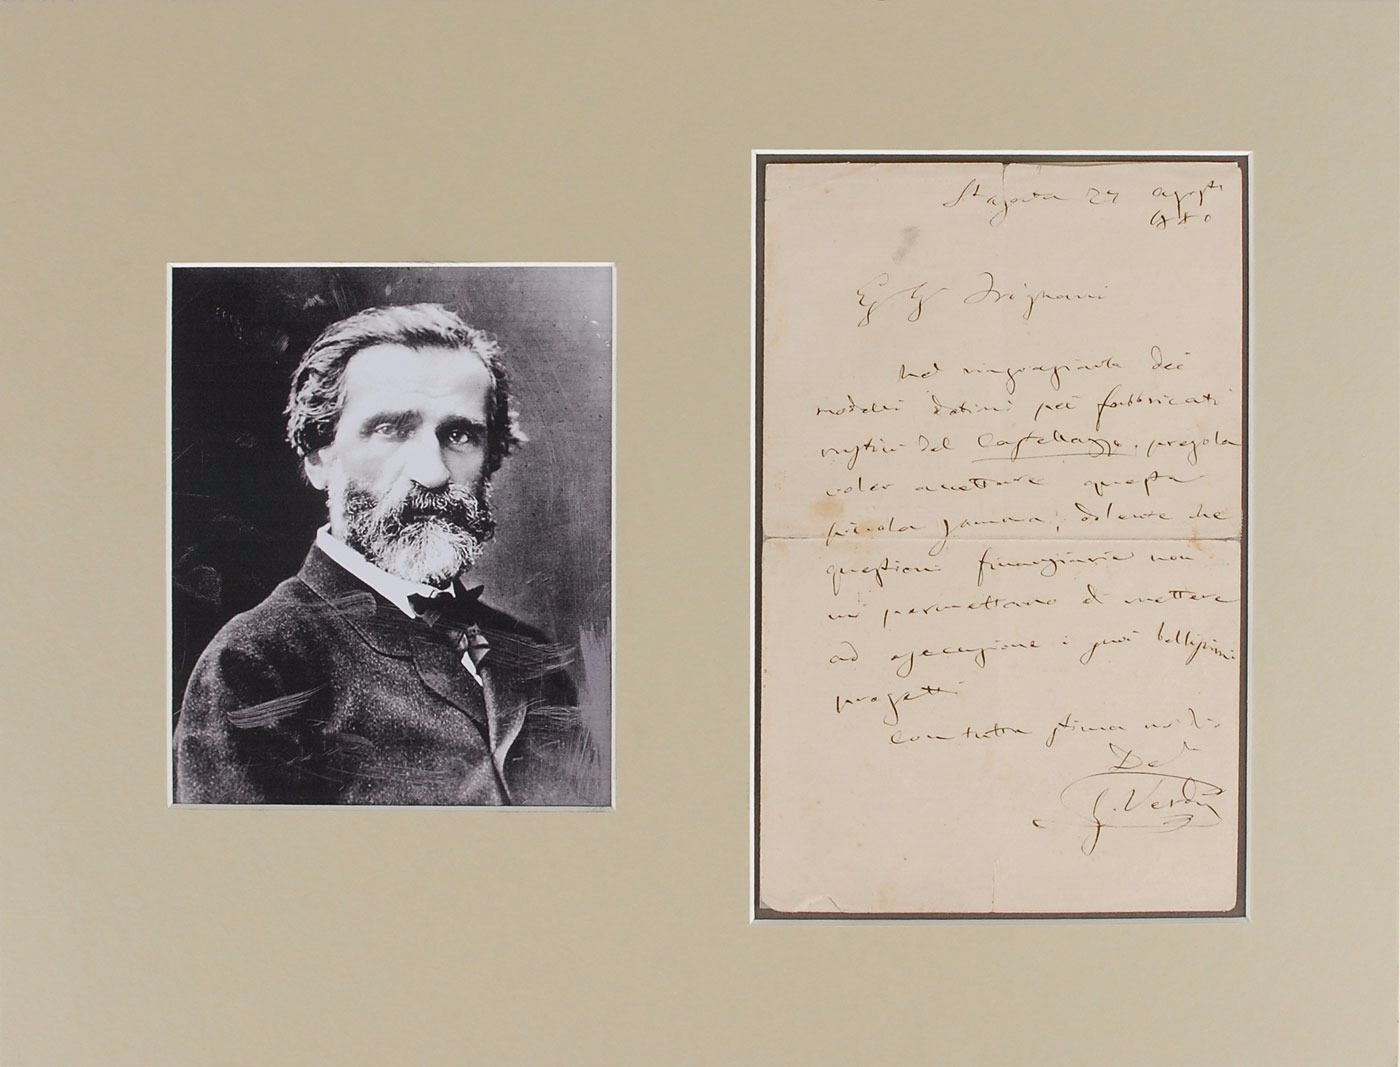 St Agata 27 agosto
1880
Eg Sg Frignani
Nel ringraziarla dei
modelli datimi pei fabbricati
rustici del Castellazzo, pregola
voler accettare questa
piccola somma, dolente che
questioni finanziarie non
mi permettano di mettere
ad esecuzione i suoi bellissimi
progetti
Con tutta stima mi dico
G. Verdi